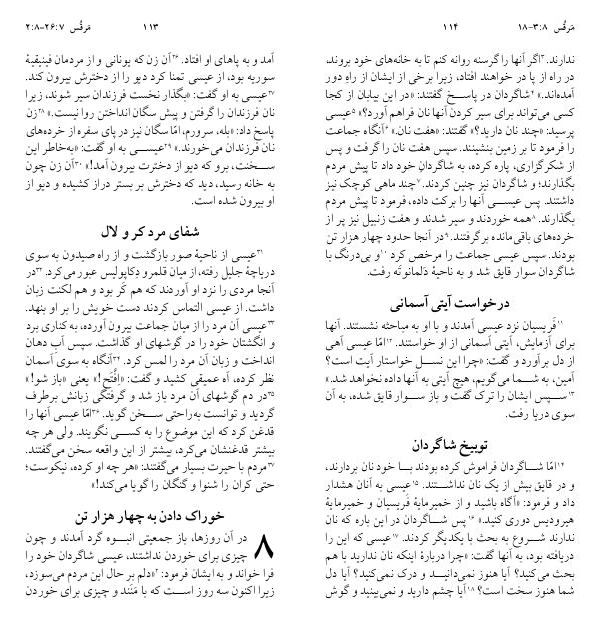 ۱۱۳ مَرقُس ۷:‏۲۶-۸:‏۲
آمد و به پاهای او افتاد. ۲۶آن زن که یونانی و از مردمان فینیقیۀ
سوریه بود، از عیسی تمنا کرد دیو را از دخترش بیرون کند.
۲۷عیسی به او گفت: «بگذار نخست فرزندان سیر شوند، زیرا
نان فرزندان را گرفتن و پیش سگان انداختن روا نیست.» ۲۸زن
پاسخ داد: «بله، سرورم، امّا سگان نیز در پای سفره از خرده‌های
نان فرزندان می‌خورند.» ۲۹عیسی به او گفت: «به‌خاطر این
سخنت، برو که دیو از دخترت بیرون آمد!» ۳۰آن زن چون
به خانه رسید، دید که دخترش بر بستر دراز کشیده و دیو از
او بیرون شده است.
شفای مرد کر و لال
۳۱عیسی از ناحیۀ صور بازگشت و از راه صیدون به سوی
دریاچۀ جلیل رفته، از میان قلمرو دِکاپولیس عبور می‌کرد. ۳۲در
آنجا مردی را نزد او آوردند که هم کَر بود و هم لکنت زبان
داشت. از عیسی التماس کردند دست خویش را بر او بنهد.
۳۳عیسی آن مرد را از میان جماعت بیرون آورده، به کناری برد
و انگشتان خود را در گوشهای او گذاشت. سپس آب دهان
انداخت و زبان آن مرد را لمس کرد. ۳۴آنگاه به سوی آسمان
نظر کرده، آه عمیقی کشید و گفت: «اِفَّتَح!» یعنی «باز شو!»
۳۵در دم گوشهای آن مرد باز شد و گرفتگی زبانش برطرف
گردید و توانست به‌راحتی سخن گوید. ۳۶امّا عیسی آنها را
قدغن کرد که این موضوع را به کسی نگویند. ولی هر چه
بیشتر قدغنشان می‌کرد، بیشتر از این واقعه سخن می‌گفتند.
۳۷مردم با حیرت بسیار می‌گفتند: «هر چه او کرده، نیکوست؛
حتی کران را شنوا و گنگان را گویا می‌کند!»
خوراک دادن به چهار هزار تن
۸ در آن روزها، باز جمعیتی انبوه گرد آمدند و چون
چیزی برای خوردن نداشتند، عیسی شاگردان خود را
فرا خواند و به ایشان فرمود: ۲«دلم بر حال این مردم می‌سوزد،
زیرا اکنون سه روز است که با مَنَند و چیزی برای خوردن
مَرقُس ۸:‏۳-۱۸ ۱۱۴
ندارند. ۳اگر آنها را گرسنه روانه کنم تا به خانه‌های خود بروند،
در راه از پا در خواهند افتاد، زیرا برخی از ایشان از راهِ دور
آمده‌اند.» ۴شاگردان در پاسخ گفتند: «در این بیابان از کجا
کسی می‌تواند برای سیر کردن آنها نان فراهم آورد؟» ۵عیسی
پرسید: «چند نان دارید؟» گفتند: «هفت نان.» ۶آنگاه جماعت
را فرمود تا بر زمین بنشینند. سپس هفت نان را گرفت و پس
از شکرگزاری، پاره کرده، به شاگردانِ خود داد تا پیش مردم
بگذارند؛ و شاگردان نیز چنین کردند. ۷چند ماهی کوچک نیز
داشتند. پس عیسی آنها را برکت داده، فرمود تا پیش مردم
بگذارند. ۸همه خوردند و سیر شدند و هفت زنبیل نیز پر از
خرده‌های باقی‌مانده برگرفتند. ۹در آنجا حدود چهار هزار تن
بودند. سپس عیسی جماعت را مرخص کرد ۱۰و بی‌درنگ با
شاگردان سوار قایق شد و به ناحیۀ دَلمانوتَه رفت.
درخواست آیتی آسمانی
۱۱فَریسیان نزد عیسی آمدند و با او به مباحثه نشستند. آنها
برای آزمایش، آیتی آسمانی از او خواستند. ۱۲امّا عیسی آهی
از دل برآورد و گفت: «چرا این نسل خواستار آیت است؟
آمین، به شما می‌گویم، هیچ آیتی به آنها داده نخواهد شد.»
۱۳سپس ایشان را ترک گفت و باز سوار قایق شده، به آن
سوی دریا رفت.
توبیخ شاگردان
۱۴امّا شاگردان فراموش کرده بودند با خود نان بردارند،
و در قایق بیش از یک نان نداشتند. ۱۵عیسی به آنان هشدار
داد و فرمود: «آگاه باشید و از خمیرمایۀ فَریسیان و خمیرمایۀ
هیرودیس دوری کنید.» ۱۶پس شاگردان در این باره که نان
ندارند شروع به بحث با یکدیگر کردند. ۱۷عیسی که این را
دریافته بود، به آنها گفت: «چرا دربارۀ اینکه نان ندارید با هم
بحث می‌کنید؟ آیا هنوز نمی‌دانید و درک نمی‌کنید؟ آیا دل
شما هنوز سخت است؟ ۱۸آیا چشم دارید و نمی‌بینید و گوش